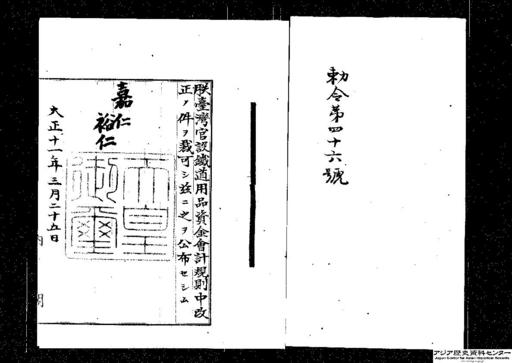 勅令第四十六號
朕臺灣官設鐵道用品資金會計規則中改
正ノ件ヲ裁可シ玆ニ之ヲ公布セシム
嘉仁
裕仁
天皇
御璽
大正十一年三月二十五日
内閣
アジア歴史資料センター
Japan Center for Asian Historical Records